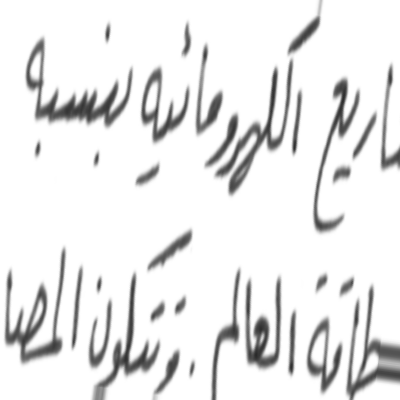 ـاريع الكهرومائيه بنسبه
طاقة العالم. وتتكون المصا